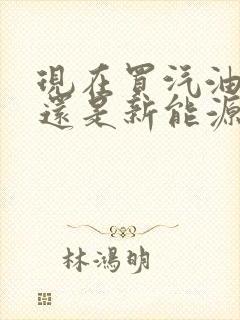 現在買汽油
還是新能源
林鴻明